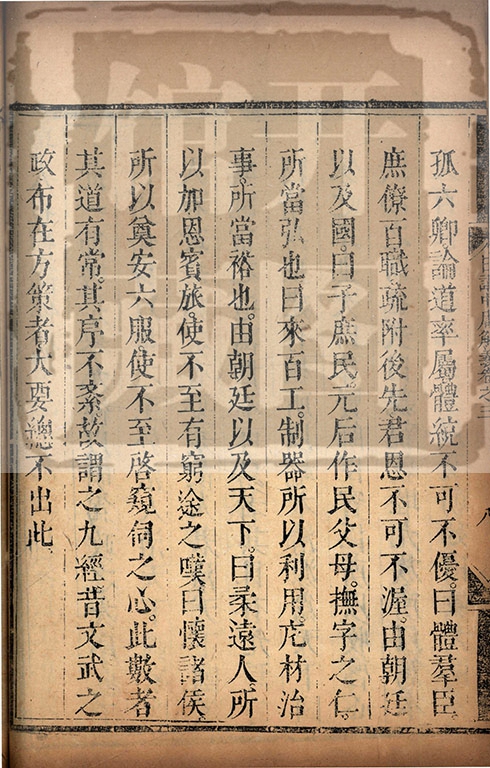 孤六卿論道率屬體統不可不優曰體羣臣
庶僚百職疏附後先君恩不可不渥由朝廷
以及國曰子庶民元后作民父母撫字之仁
所當弘也曰來百工制器所以利用庀材治
事所當裕也由朝廷以及天下曰柔遠人所
以加恩賓旅使不至有窮途之嘆曰懷諸侯
所以奠安六服使不至啓窺伺之心此數者
其道有常其序不紊故謂之九經昔文武之
政布在方策者大要總不出此